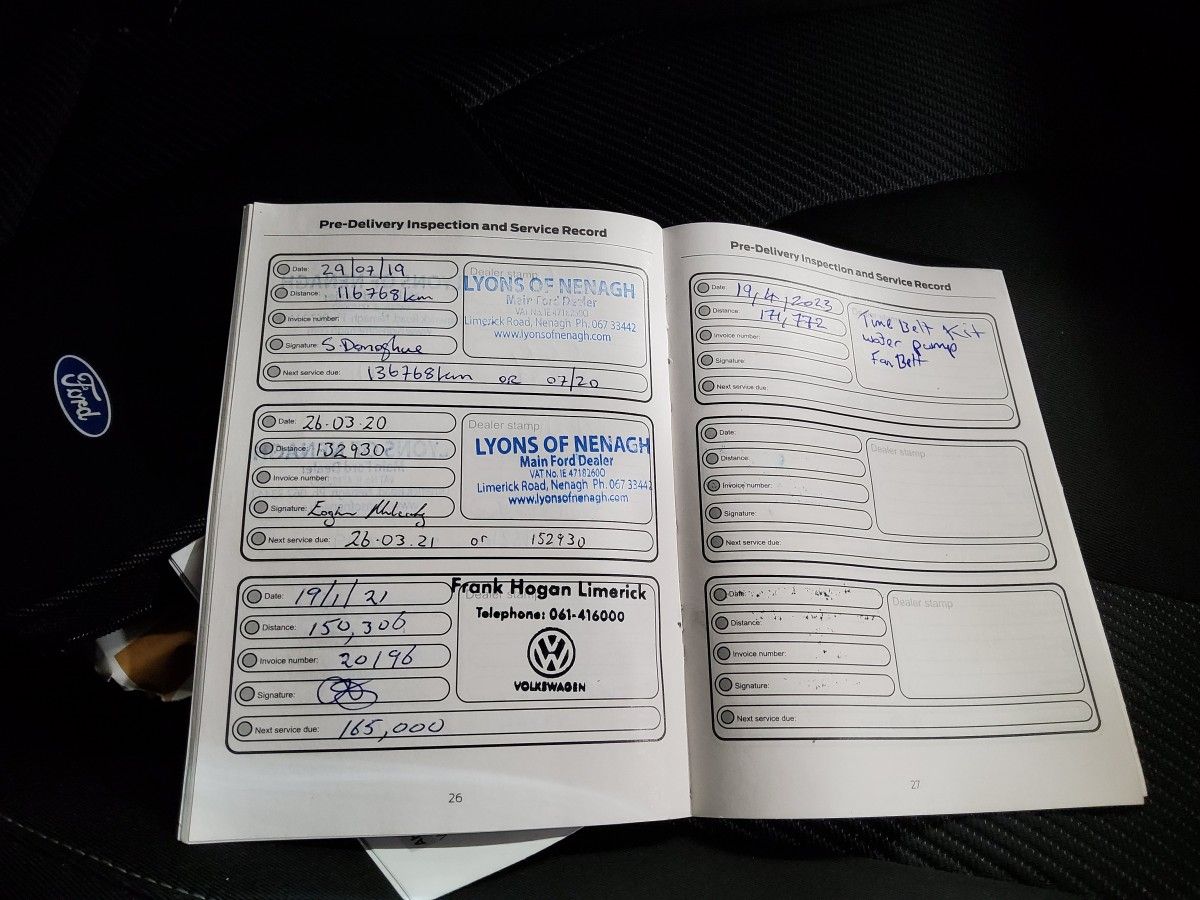 Ford
Pre-Delivery Inspection and Service Record
Date: 29/07/19
Distance: 116768km
Invoice number:
Signature: S. Donoghue
Next service due: 136768km OR 07/20
Dealer stamp
LYONS OF NENAGH
Main Ford Dealer
VAT No. IE 4718260O
Limerick Road, Nenagh Ph: 067 33442
www.lyonsofnenagh.com
Date: 26.03.20
Distance: 132930
Invoice number:
Signature: Eoghan
Next service due: 26.03.21 or 152930
Dealer stamp
LYONS OF NENAGH
Main Ford Dealer
VAT No. IE 4718260O
Limerick Road, Nenagh Ph. 067 33442
www.lyonsofnenagh.com
Date: 19/1/21
Distance: 150,306
Invoice number: 20196
Signature:
Next service due: 165,000
Dealer stamp
Frank Hogan Limerick
Telephone: 061-416000
VOLKSWAGEN
26
Pre-Delivery Inspection and Service Record
Date: 19/4/2023
Distance: 171,772
Invoice number:
Signature:
Next service due:
Time Belt Kit
water pump
Fan Belt
Date:
Distance:
Invoice number:
Signature:
Next service due:
Dealer stamp
Date:
Distance:
Invoice number:
Signature:
Next service due:
Dealer stamp
27